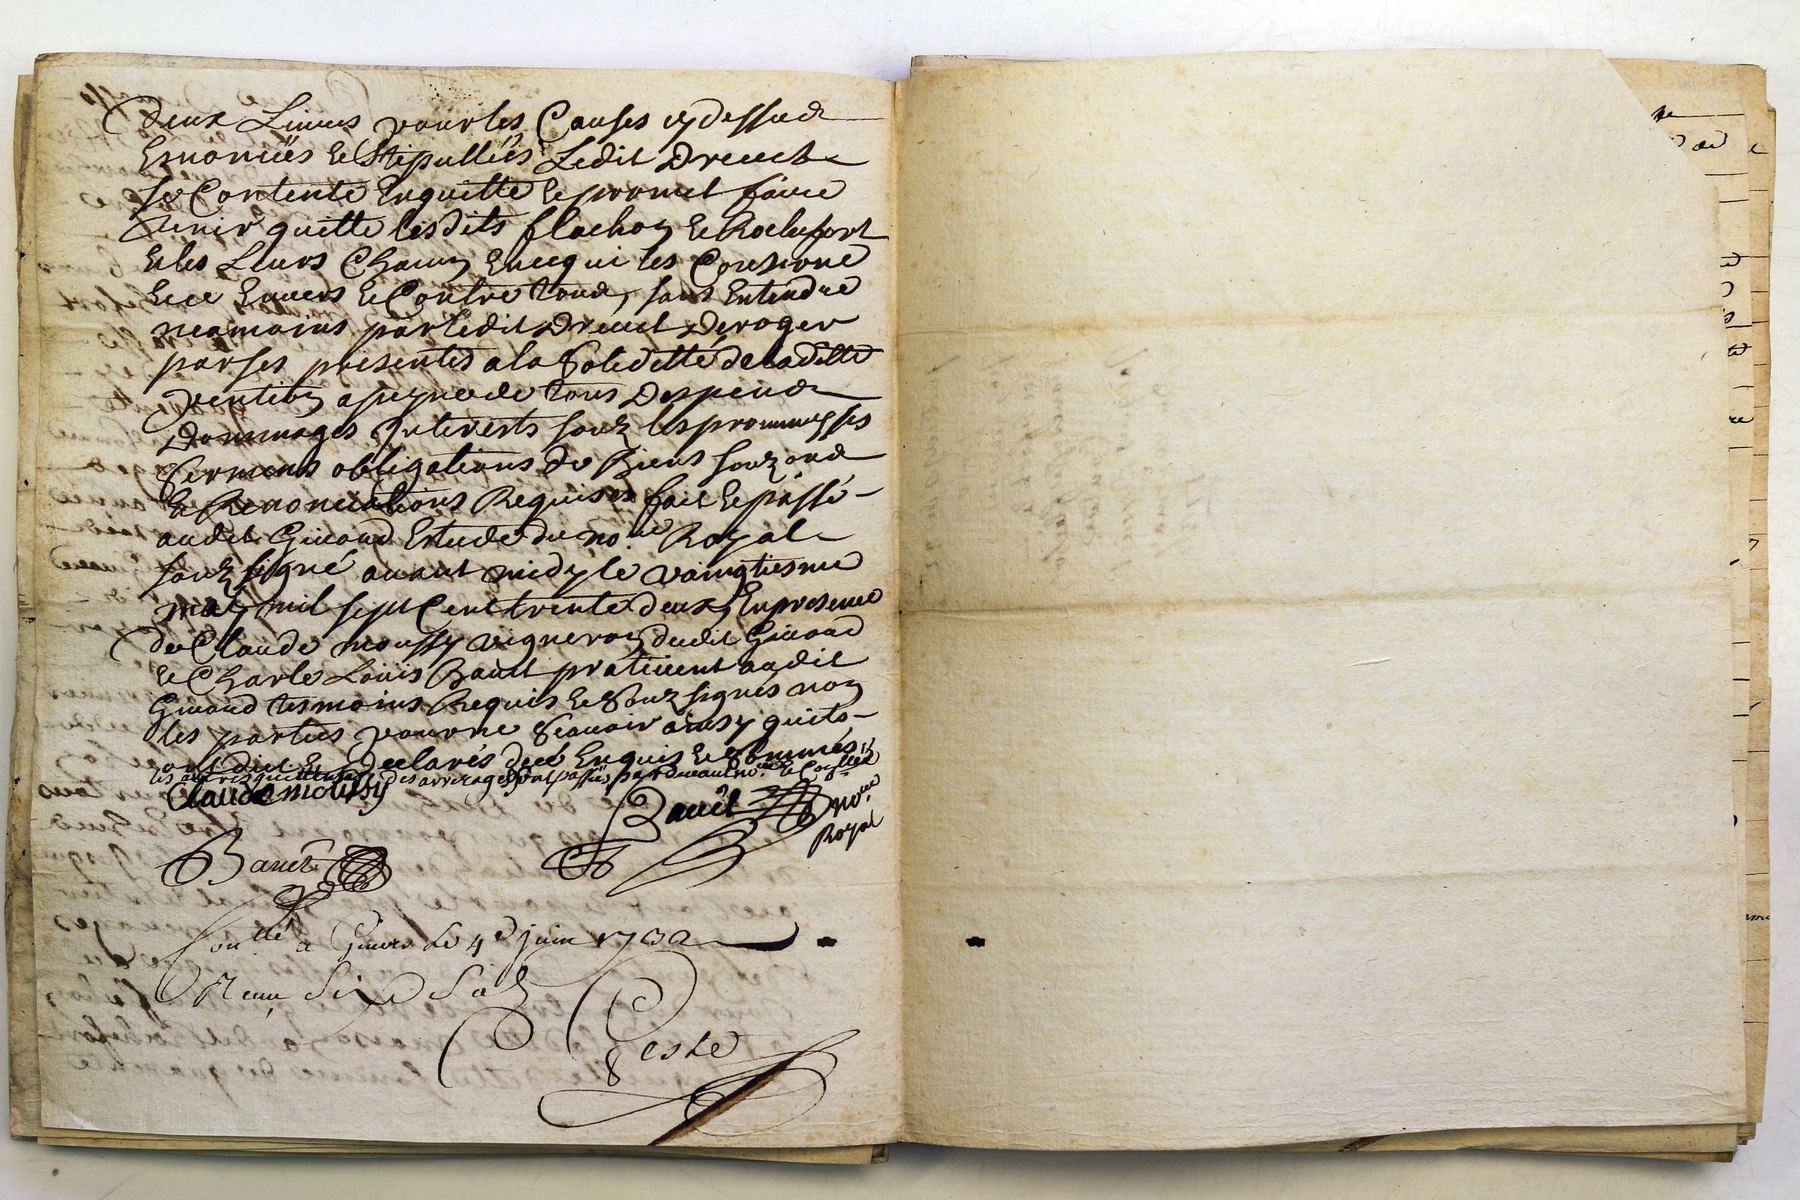 deux Livres pour les Causes cy dessud
Enonciées Et Stipullées Ledit Drevet
se Contente Enquitte Et promet faire
tenir quitte lesdits flachon Et Rochefort
Et les Leurs Chacun Encequi les Conserne
Et ce Envers Et Contre tous, sans Entendre
neamoins par Ledit Drevet Deroger
par ses presentes a la Soledetté de ladette
pention a peyne de tous Despend
Dommages Interests souz les prommesses
serments obligations de Biens souzond
Et Renonciations Requises fait Et passé
audit Givord Estude du no.re Royal
souz signé avant midy le vaingtiesme
may mil sept Cent trente deux, En presence
de Claude moussy vigneron dudit Givord
Et Charle Louis Bault praticient audit
Givord tesmoins Requis Et Souz signés non
les parties pour ne Scavoir ainsy quils
ont dit Et Declarés de ce Enquis Et Sommés
les autres quittences des arrerages sont passées pardevant no.re
Claude moussy
Bault no.re
Royal
Bault
Con.llé a Givors Le 4e juin 1732
Reçu Six Sols
Peste